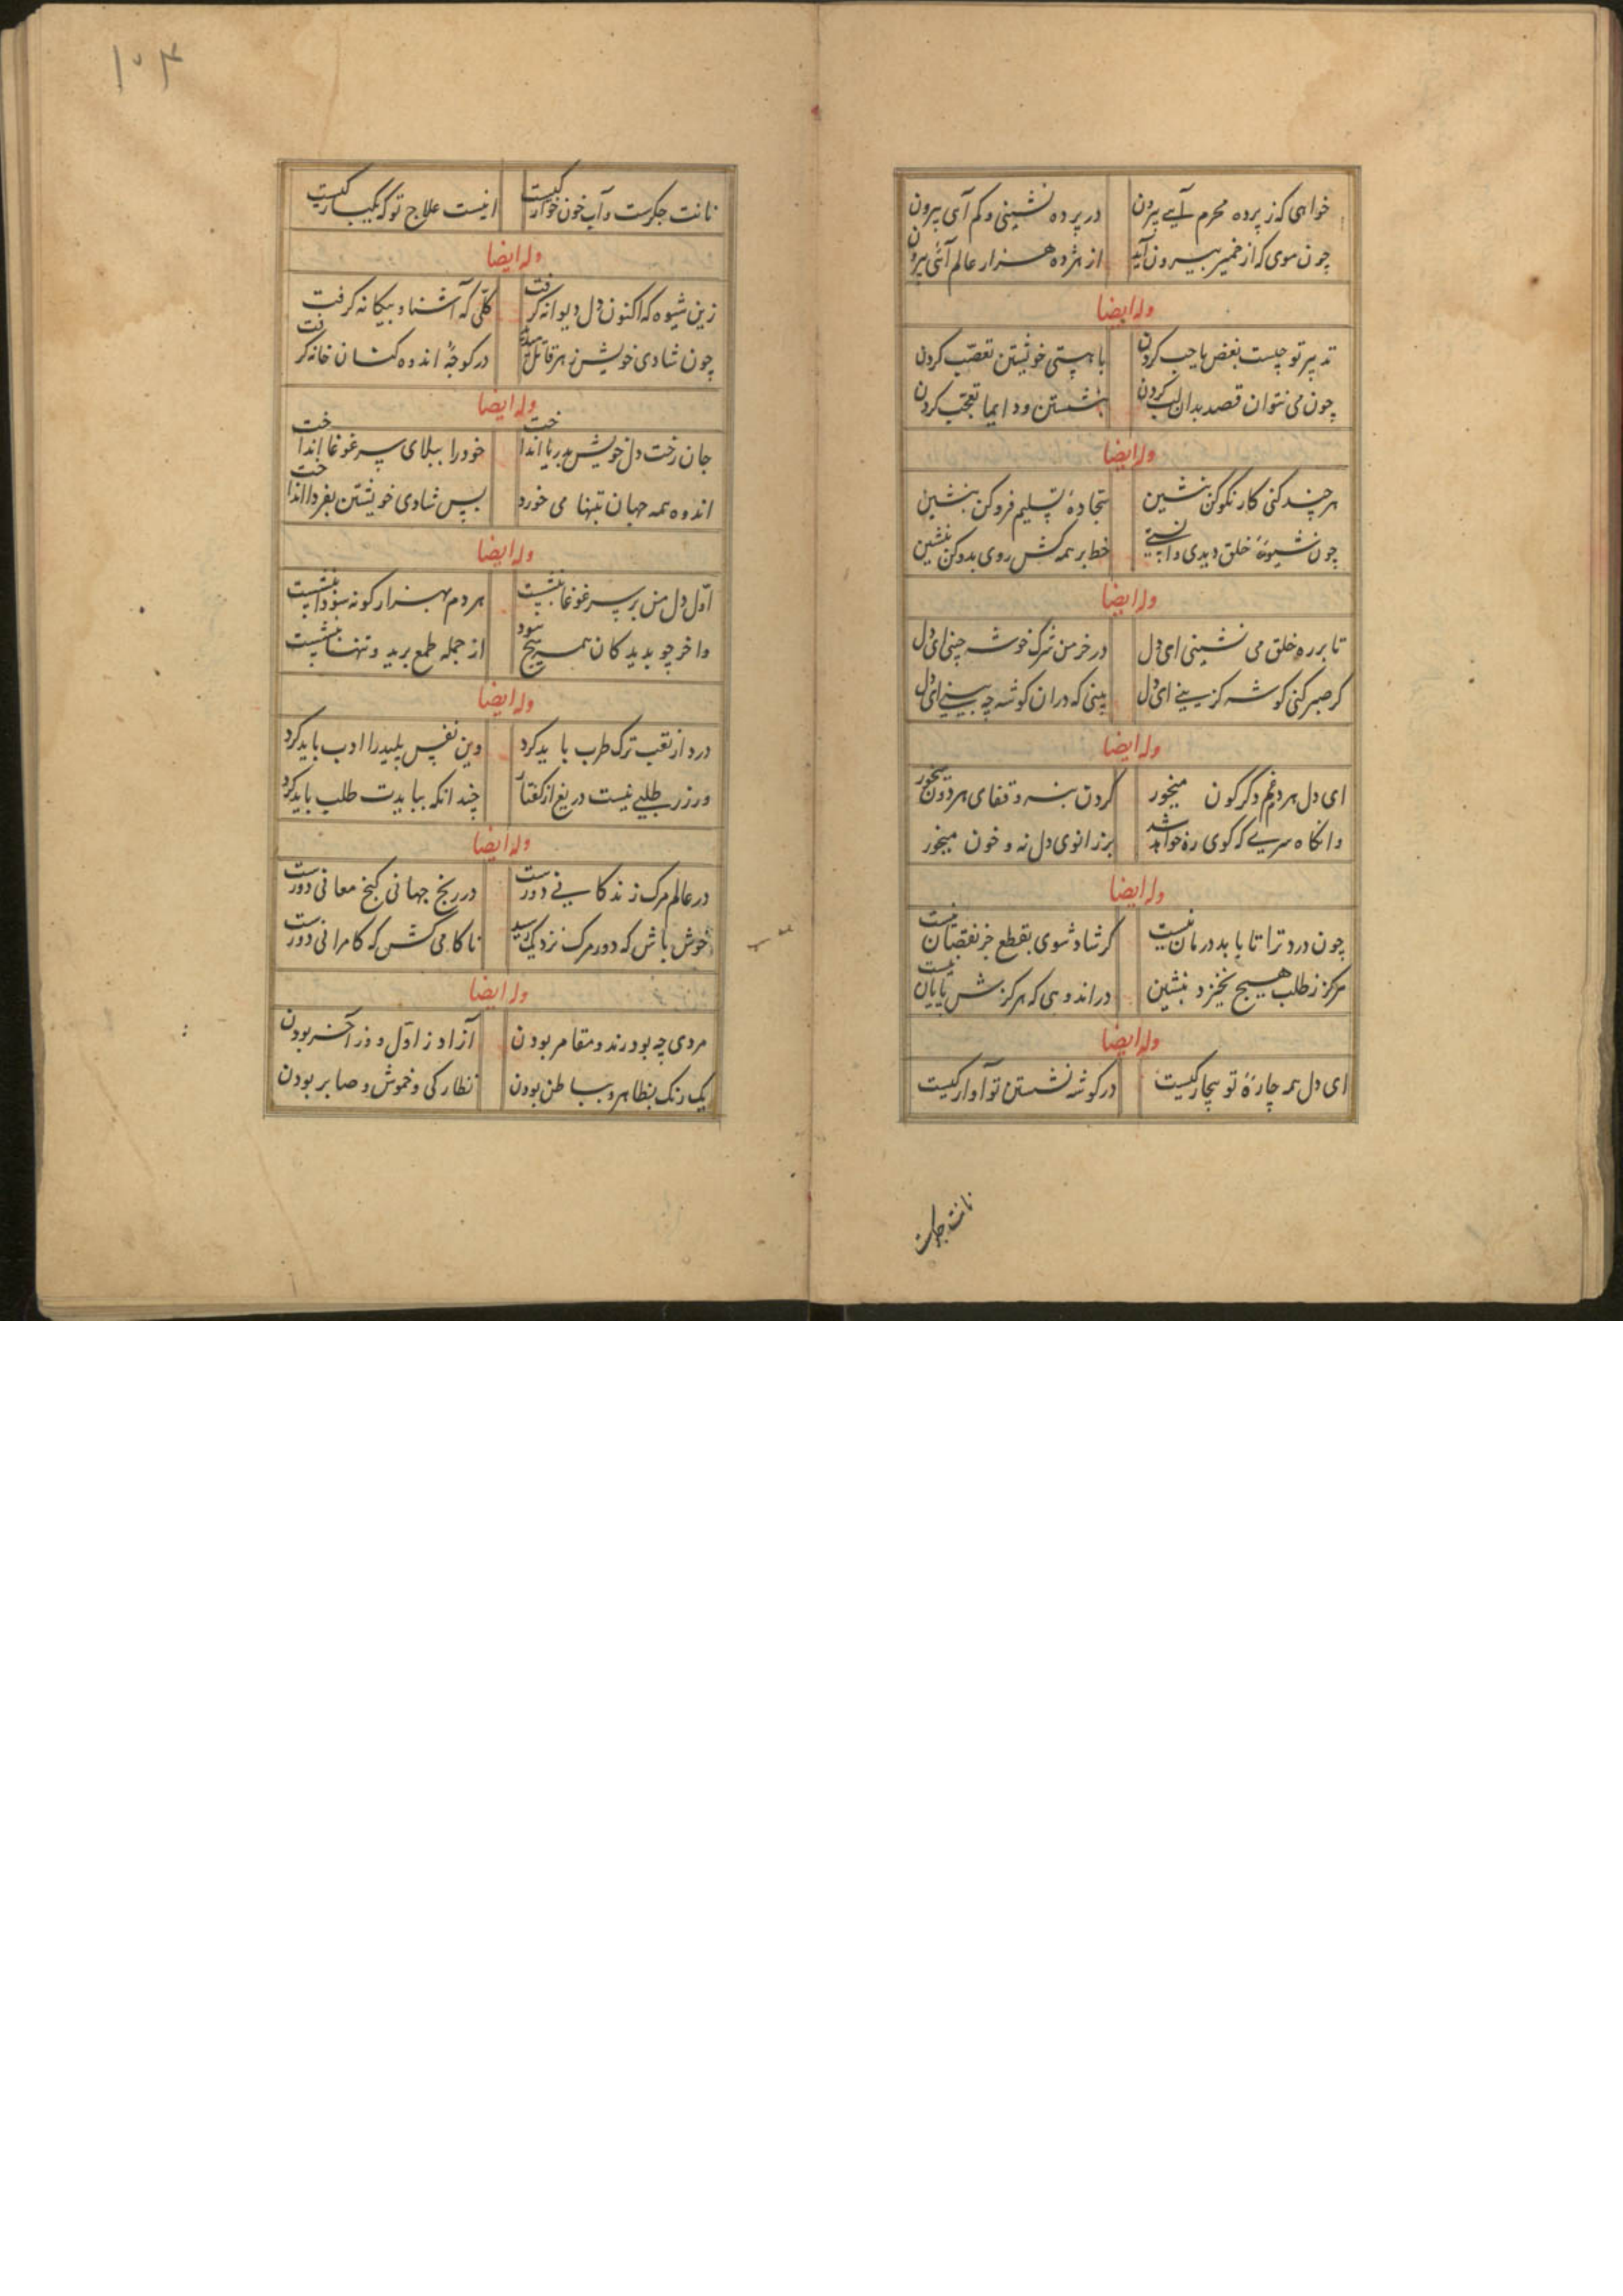 خواهی که ز پرده محرم آیی بیرون در پرده نشینی و کم آی بیرون
چون موی که از خمیر بیرون آید از هژده هزار عالم آئی بیرون
وله ایضا
تدبیر تو چیست بغض با حب کردن با هستی خویشتن تعصب کردن
چون می نتوان قصد بدان لب کردن بنشستن و دایما تعجب کردن
وله ایضا
هر چند کنی کار نکو کن بنشین سجادهٔ تسلیم فرو کن بنشین
چون شیوهٔ خلق دیدی و خط بر همه کش روی بدو کن بنشین
وله ایضا
تا بر ره خلق می نشینی ای دل در خرمن شرک خوشه چینی ای دل
کر صبر کنی کوشه کزینی ای دل بینی که در ان کوشه چه بینی ای دل
وله ایضا
ای دل هر دم غم دکرکون میخور کردن بنه و قفای هر دون میخور
وانکاه سری که کوی ره خواهد شد بر زانوی دل نه و خون میخور
وله ایضا
چون درد ترا تا بابد درمان نیست کر شاد شوی بقطع جز نقصان نیست
هرکز ز طلب هیچ نخیزد بنشین در اندوهی که هرکزش پایان نیست
وله ایضا
ای دل همه چارهٔ تو بیچارکیست در کوشه نشستن تو آوارکیست
نانت جکرست
۱۰۴
نانت جکرست و آب خون خوارکیست اینست علاج تو که یکبارکیست
وله ایضا
زین شیوه که اکنون دل دیوانه کرفت کلی که آشنا و بیکانه کرفت
چون شادی خویش زهر قاتل در کوجهٔ اندوه کشان خانه کرفت
وله ایضا
جان رخت دل خویش بدریا انداخت خود را ببلای سر غوغا انداخت
اندوه همه جهان بتنها می خورد بس شادی خویشتن بفردا انداخت
وله ایضا
اول دل من بر سر غوغا بنشست هر دم بهزار کونه سودا بنشست
واخر چو بدید کان همه هیچ بود از جمله طمع برید و تنها بنشست
وله ایضا
درد از تعب ترک طرب باید کرد وین نفس پلید را ادب باید کرد
ور زر طلبی نیست دریغ از کفتار چندانکه ببایدت طلب باید کرد
وله ایضا
در عالم مرک زندکانی دورست در رنج جهانی کنج معانی دورست
خوش باش که دور مرک نزدیک رسید ناکامی کش که کامرانی دورست
وله ایضا
مردی چه بود رند و مقامر بودن آزاد ز اول وز آخر بودن
یک رنک بظاهر و بباطن بودن نظارکی و خموش و صابر بودن